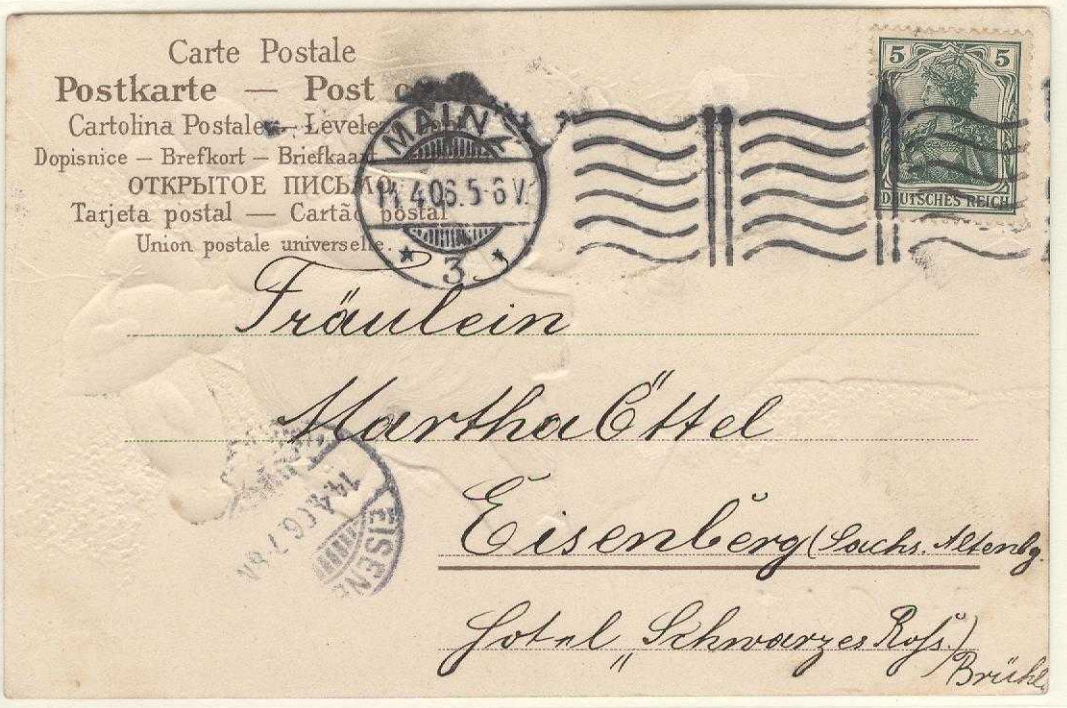 Carte Postale
Postkarte — Post
Cartolina Postale — Levelez
Dopisnice — Brefkort — Briefkaart
ОТКРЫТОЕ ПИСЬМО
Tarjeta postal — Cartão postal
Union postale universelle.
MAINZ
14.4.06. 5-6 V.
* 3 *
5 5
DEUTSCHES REICH
Fräulein
Martha Öttel
Eisenberg (Sachs. Altenbg.
Hotel „Schwarzes Roß.)
Brühl
EISENB
14.4.06 7-8 N